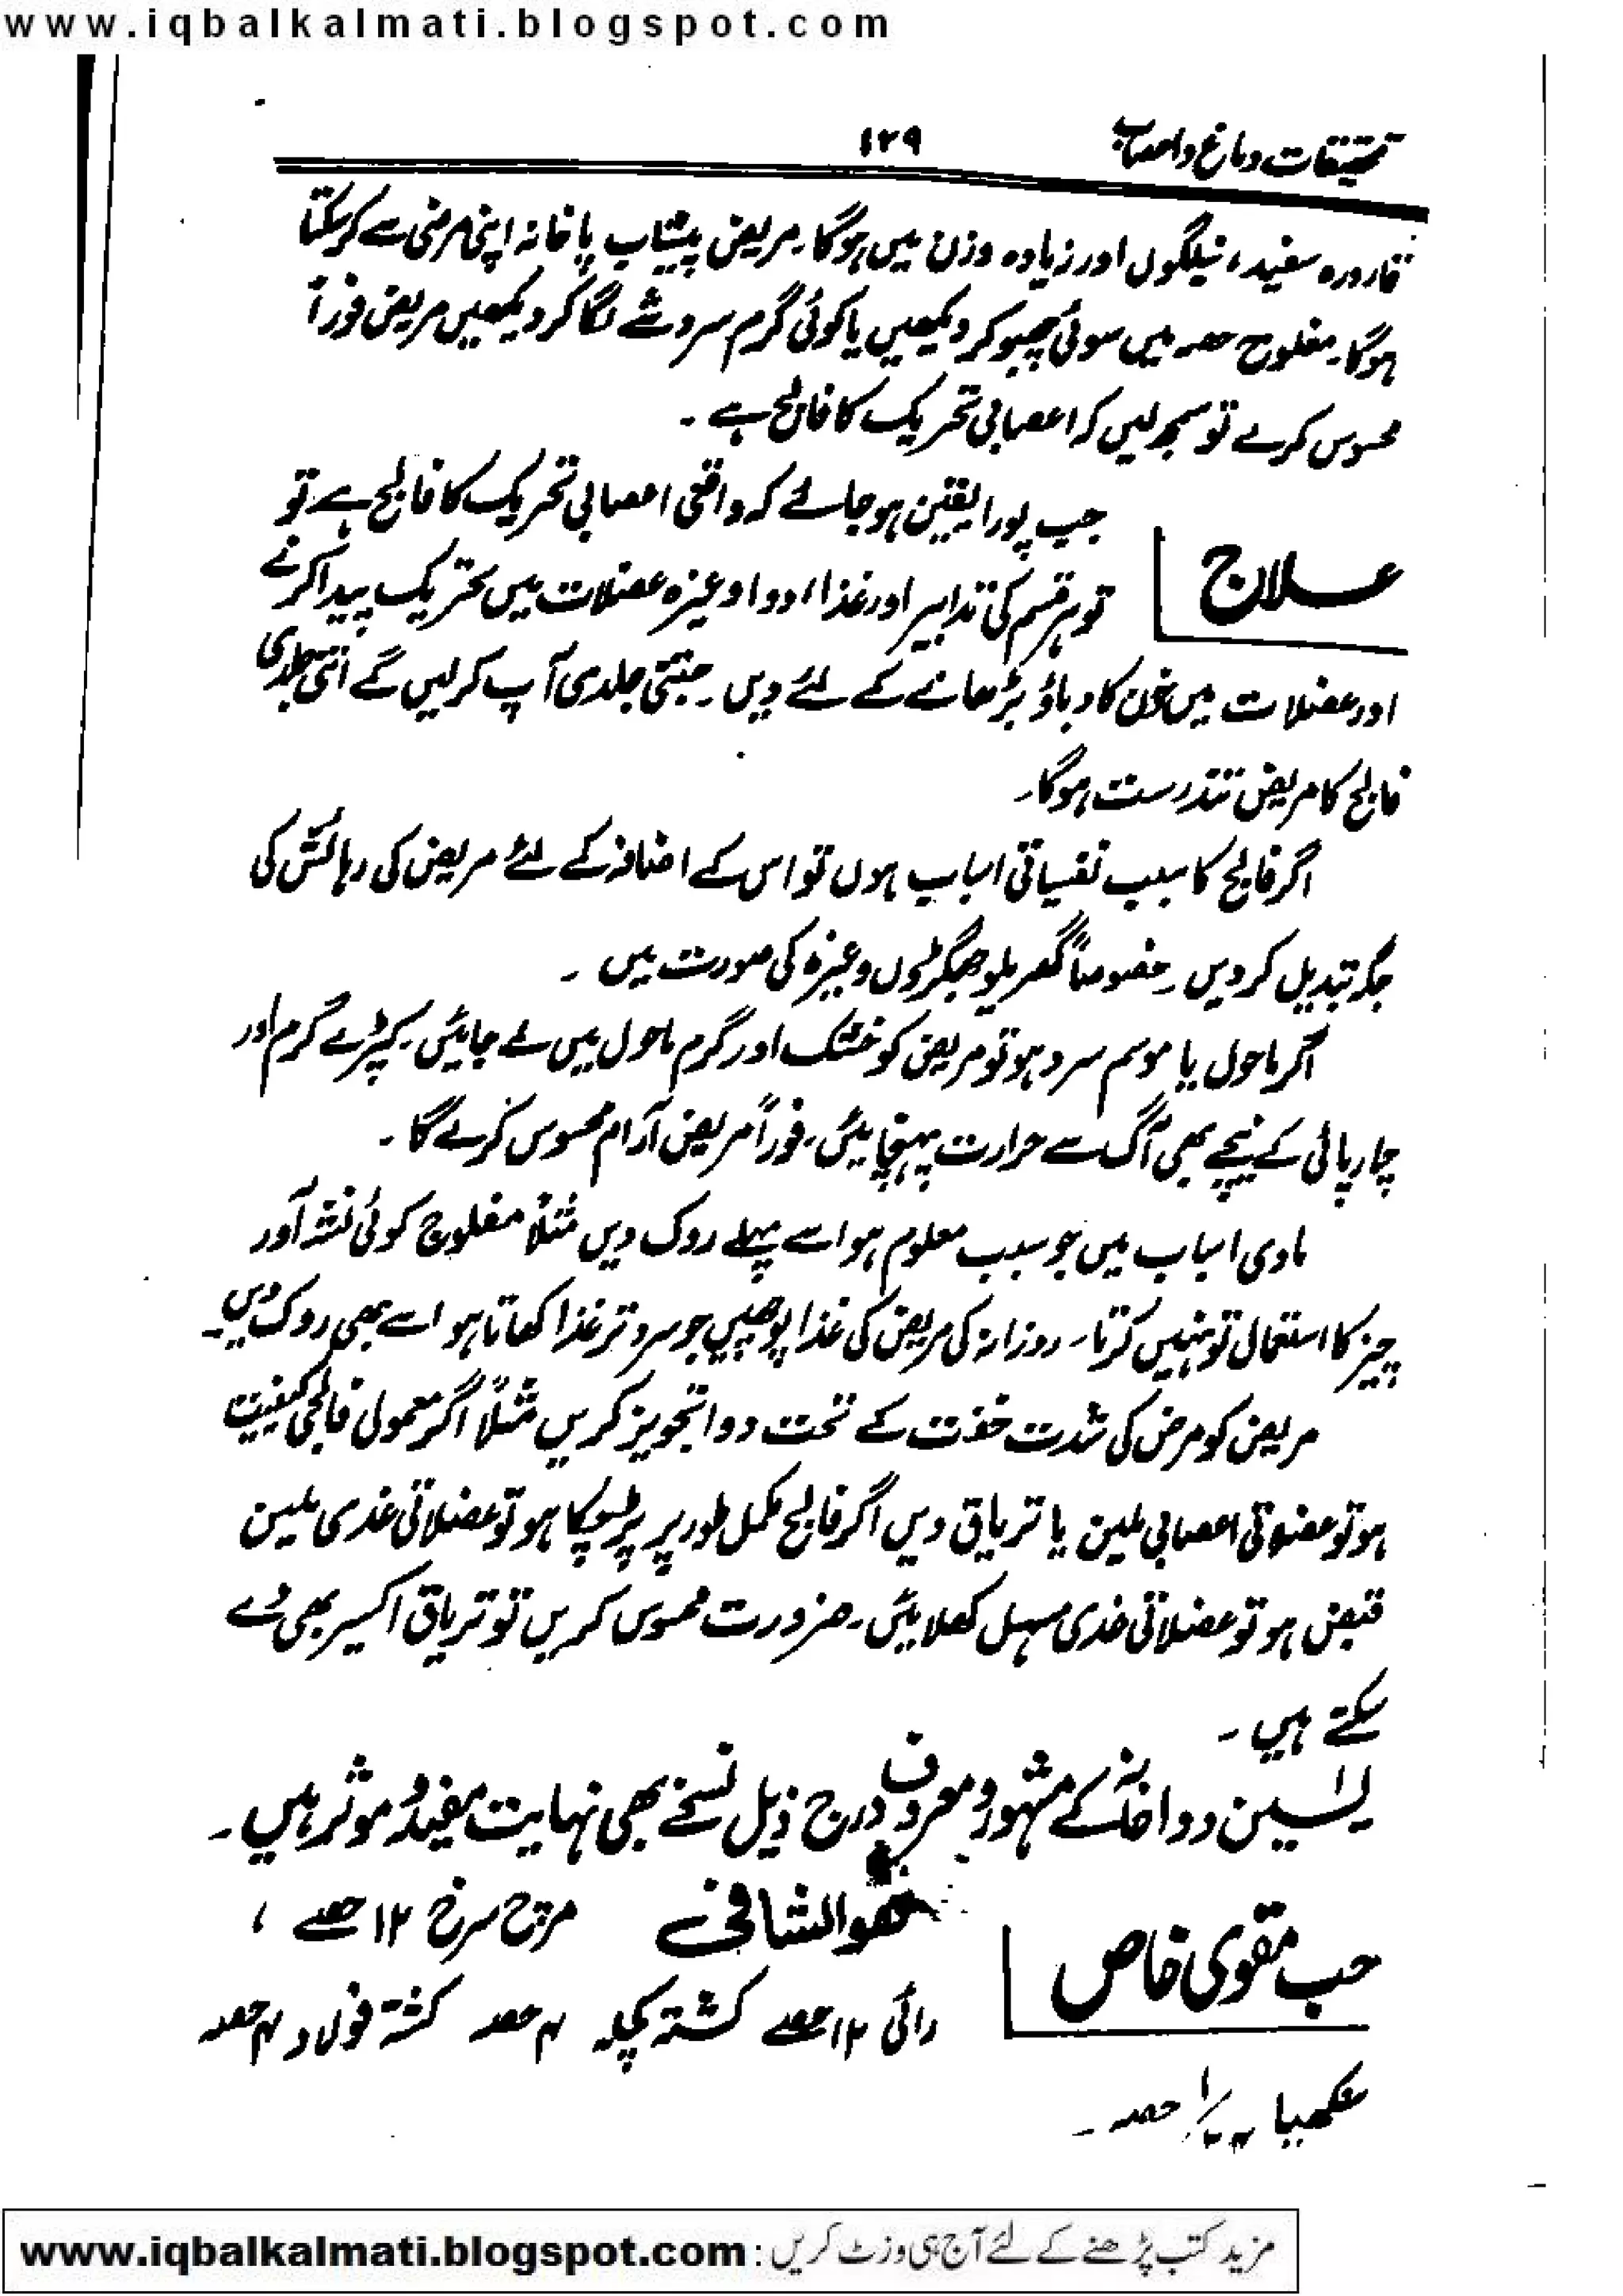 www.iqbalkalmati.blogspot.com
تحقیقات دماغ و اعصاب ۱۲۹
قارورہ سفید، نیلگوں اور زیادہ وزن میں ہوگا۔ مریض پیشاب پاخانہ اپنی مرضی سے کرسکتا
ہوگا۔ مفلوج حصہ میں سوئی چبھو کر دیکھیں یا کوئی گرم سرد شے لگا کر دیکھیں مریض فوراً
محسوس کرے تو سمجھ لیں کہ اعصابی تحریک کا فالج ہے۔
علاج
جب پورا یقین ہو جائے کہ واقعی اعصابی تحریک کا فالج ہے تو
تو ہر قسم کی تدابیر اور غذا، دوا وغیرہ عضلات میں تحریک پیدا کرنے
اور عضلات میں خون کا دباؤ بڑھانے کے لئے دیں۔ جتنی جلدی آپ کرلیں گے اتنی جلدی
فالج کا مریض تندرست ہوگا۔
اگر فالج کا سبب نفسیاتی اسباب ہوں تو اس کے اضافہ کے لئے مریض کی رہائش کی
جگہ تبدیل کردیں۔ خصوصاً گھریلو جھگڑوں وغیرہ کی صورت میں۔
اگر ماحول یا موسم سرد ہو تو مریض کو خشک اور گرم ماحول میں لے جائیں۔ کپڑے گرم اور
چارپائی کے نیچے بھی آگ سے حرارت پہنچائیں۔ فوراً مریض آرام محسوس کرے گا۔
مادی اسباب میں جو سبب معلوم ہو اسے پہلے روک دیں مثلاً مفلوج کوئی نشہ آور
چیز کا استعمال تو نہیں کرتا۔ روزانہ کی مریض کی غذا پوچھیں جو سرد تر غذا کھاتا ہو اسے بھی روک دیں۔
مریض کو مرض کی شدت خفت کے تحت دوا تجویز کریں مثلاً اگر معمولی فالجی کیفیت
ہو تو عضلاتی اعصابی ملین یا تریاق دیں اگر فالج مکمل طور پر پڑ چکا ہو تو عضلاتی غدی ملین
قبض ہو تو عضلاتی غدی مسہل کھلائیں۔ ضرورت محسوس کریں تو تریاق اکسیر بھی دے
سکتے ہیں۔
یٰسین دواخانہ کے مشہور و معروف درج ذیل نسخے بھی نہایت مفید و موثر ہیں۔
حب مقوی خاص
ھوالشافی مرچ سرخ ۱۲ حصے،
رائی ۱۲ حصے کشتہ کچلہ ۴ حصہ کشتہ فولاد ۴ حصہ
سنکھیا حصہ۔
مزید کتب پڑھنے کے لئے آج ہی وزٹ کریں : www.iqbalkalmati.blogspot.com